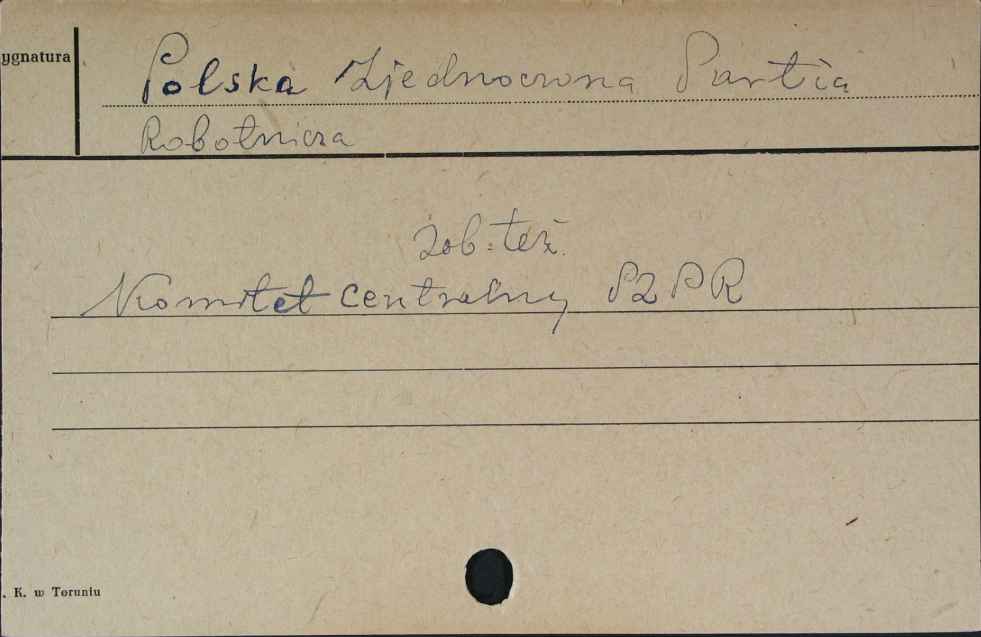 ygnatura
Polska Zjednoczona Partia
Robotnicza
Zob. też.
Komitet centralny PZPR
. K. w Toruniu